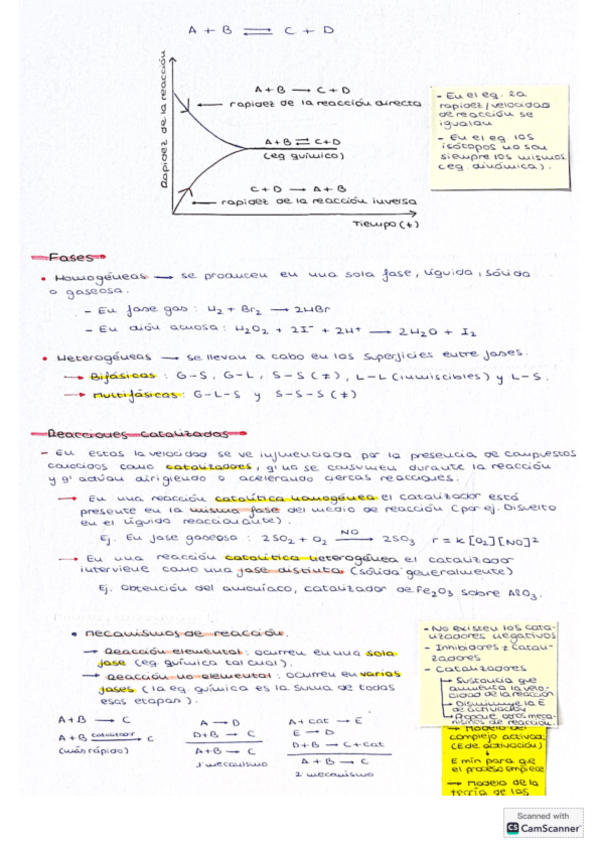 A + B ⇌ C + D
Rapidez de la reacción
A + B → C + D
← rapidez de la reacción directa
A + B ⇌ C + D
(eq químico)
C + D → A + B
← rapidez de la reacción inversa
Tiempo (t)
- En el eq. la
rapidez/velocidad
de reacción se
igualan
- En el eq. los
isótopos no son
siempre los mismos
(eq. dinámico).
Fases
• Homogéneas → se producen en una sola fase, líquida, sólida
o gaseosa.
- En fase gas: H₂ + Br₂ → 2HBr
- En dión acuosa: H₂O₂ + 2I⁻ + 2H⁺ → 2H₂O + I₂
• Heterogéneas → se llevan a cabo en las superficies entre fases.
→ Bifásicas: G-S, G-L, S-S (≠), L-L (inmiscibles) y L-S.
→ Multifásicas: G-L-S y S-S-S (≠)
Reacciones catalizadas
- En estas la velocidad se ve influenciada por la presencia de compuestos
conocidos como catalizadores, q' no se consumen durante la reacción
y q' actúan dirigiendo o acelerando ciertas reacciones.
→ En una reacción catalítica homogénea el catalizador está
presente en la misma fase del medio de reacción (por ej. Disuelto
en el líquido reaccionante).
Ej. En fase gaseosa: 2SO₂ + O₂ —NO→ 2SO₃ r = k [O₂][NO]²
→ En una reacción catalítica heterogénea el catalizador
interviene como una fase distinta (sólida generalmente)
Ej. Obtención del amoníaco, catalizador de Fe₂O₃ sobre AlO₃.
• Mecanismos de reacción.
→ Reacción elemental: ocurren en una sola
fase (eq. química tal cual).
→ Reacción no elemental: ocurren en varias
fases (la eq. química es la suma de todas
esas etapas).
A + B → C
A + B —catalizador→ C
(más rápido)
A → D
D + B → C
A + B → C
1º mecanismo
A + cat → E
E → D
D + B → C + cat
A + B → C
2º mecanismo
- No existen los cata-
lizadores negativos
- Inhibidores ≠ catali-
zadores
- Catalizadores
→ Sustancia que
aumenta la velo-
cidad de la reacción
→ Disminuye la E
de activación
→ Propone otros meca-
nismos de reacción.
→ Modelo del
complejo activado
(E de activación)
E mín para que
el proceso empiece
→ Modelo de la
teoría de las
Scanned with
CS CamScanner